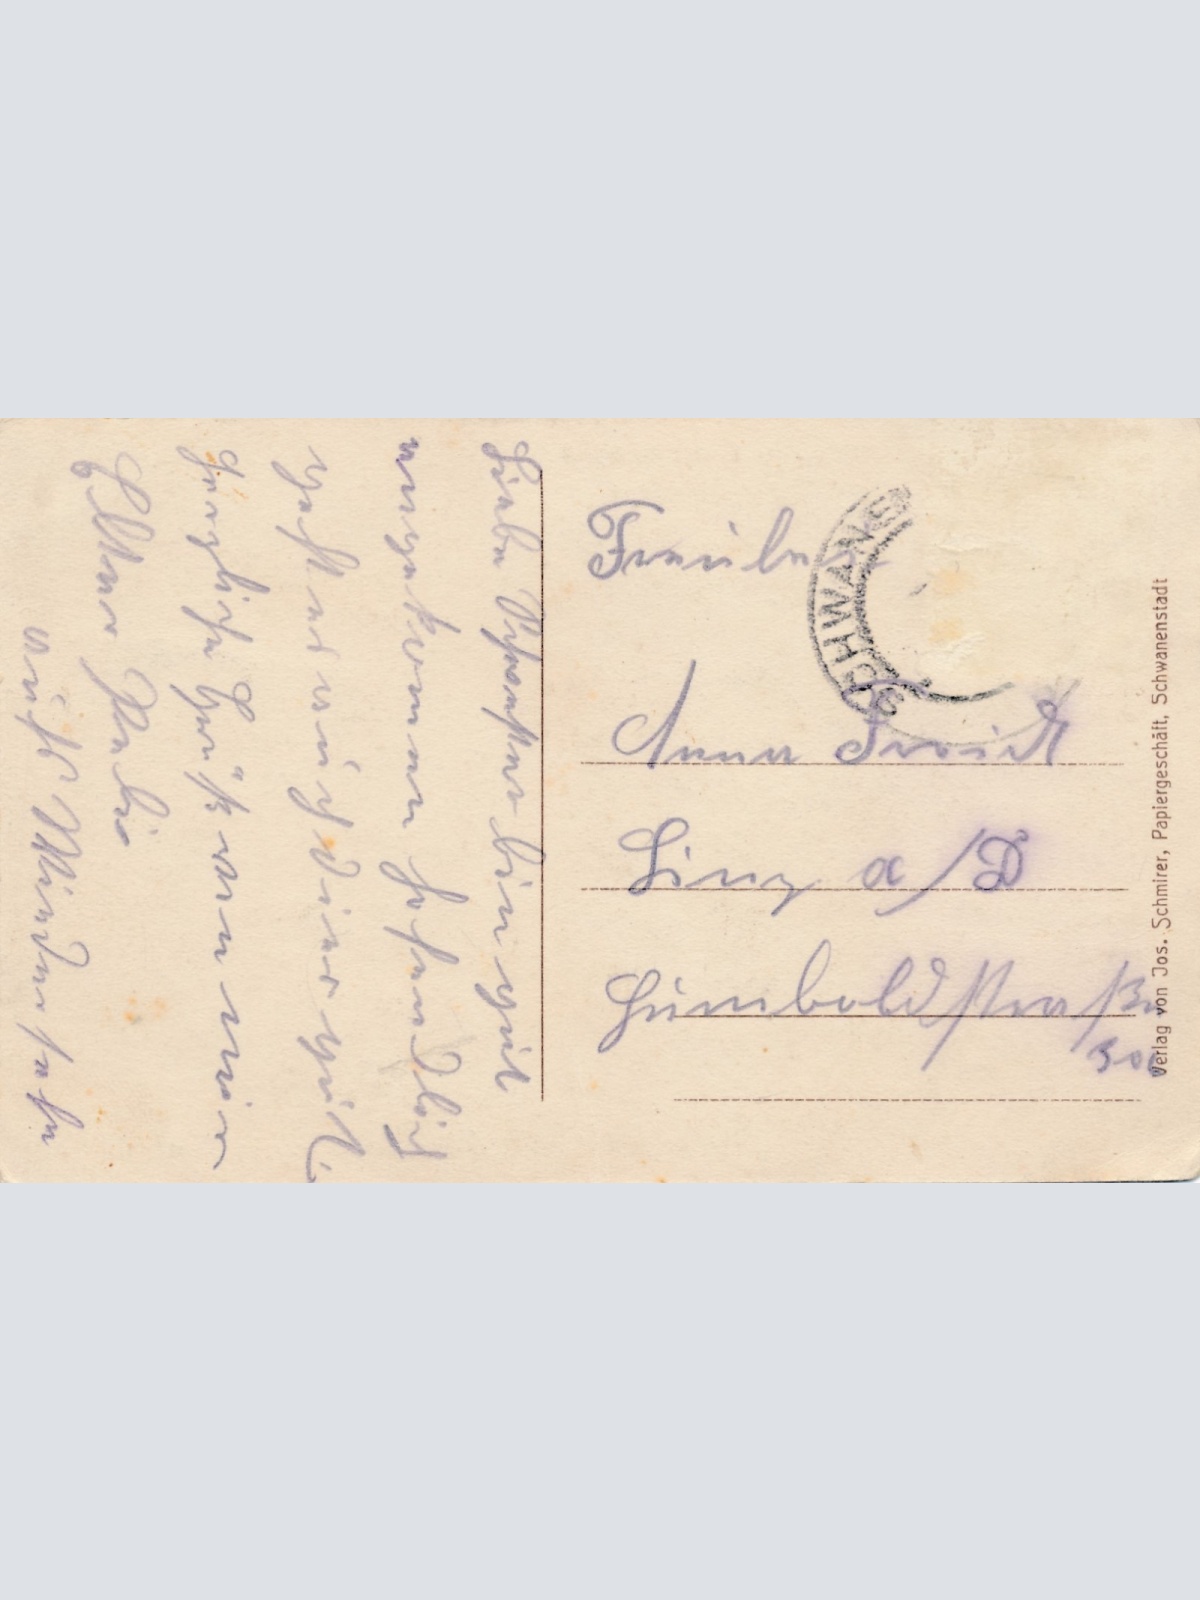 Liebe Schwester bin gut
angekommen hofendlich
gehst es auch dier gut.
Herzliche Grüße von mir
auf Wiedersehn
Fräulein
Anna
Linz a/D
Humboldstraße
30
SCHWANE
Verlag von Jos. Schmirer, Papiergeschäft, Schwanenstadt